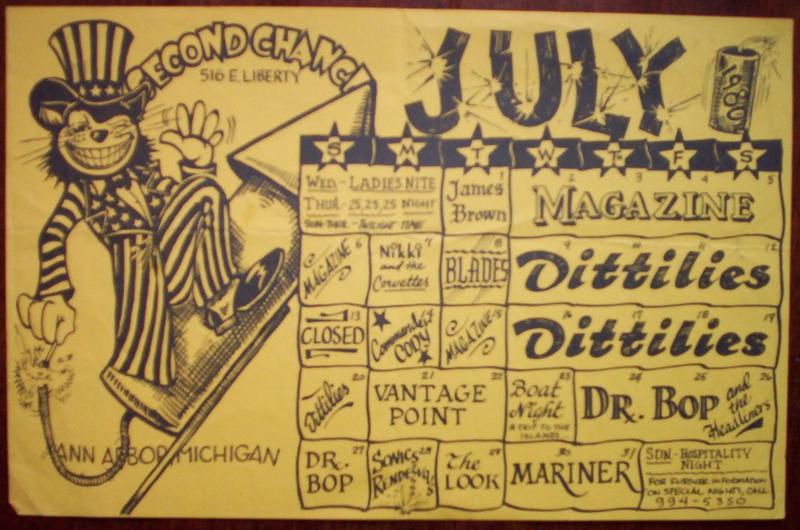 SECOND CHANCE
516 E. LIBERTY
JULY
1980
S M T W T F S
WED - LADIES NITE
THUR - 25, 25, 25 NIGHT
1
James
Brown
2 3 4 5
MAGAZINE
6
MAGAZINE
7
Nikki
and the
Corvettes
8
BLADES
9 10 11 12
Dittilies
13
CLOSED
14
Commander
CODY
15
MAGAZINE
16 17 18 19
Dittilies
20
Dittilies
21 22
VANTAGE
POINT
23
Boat
Night
A TRIP TO THE
ISLANDS
24 25 26
DR. BOP and
the
Headliners
27
DR.
BOP
28
SONICS
RENDEZVOUS
29
The
LOOK
30 31
MARINER
SUN - HOSPITALITY
NIGHT
FOR FURTHER INFORMATION
ON SPECIAL NIGHTS, CALL
994-5350
ANN ARBOR, MICHIGAN